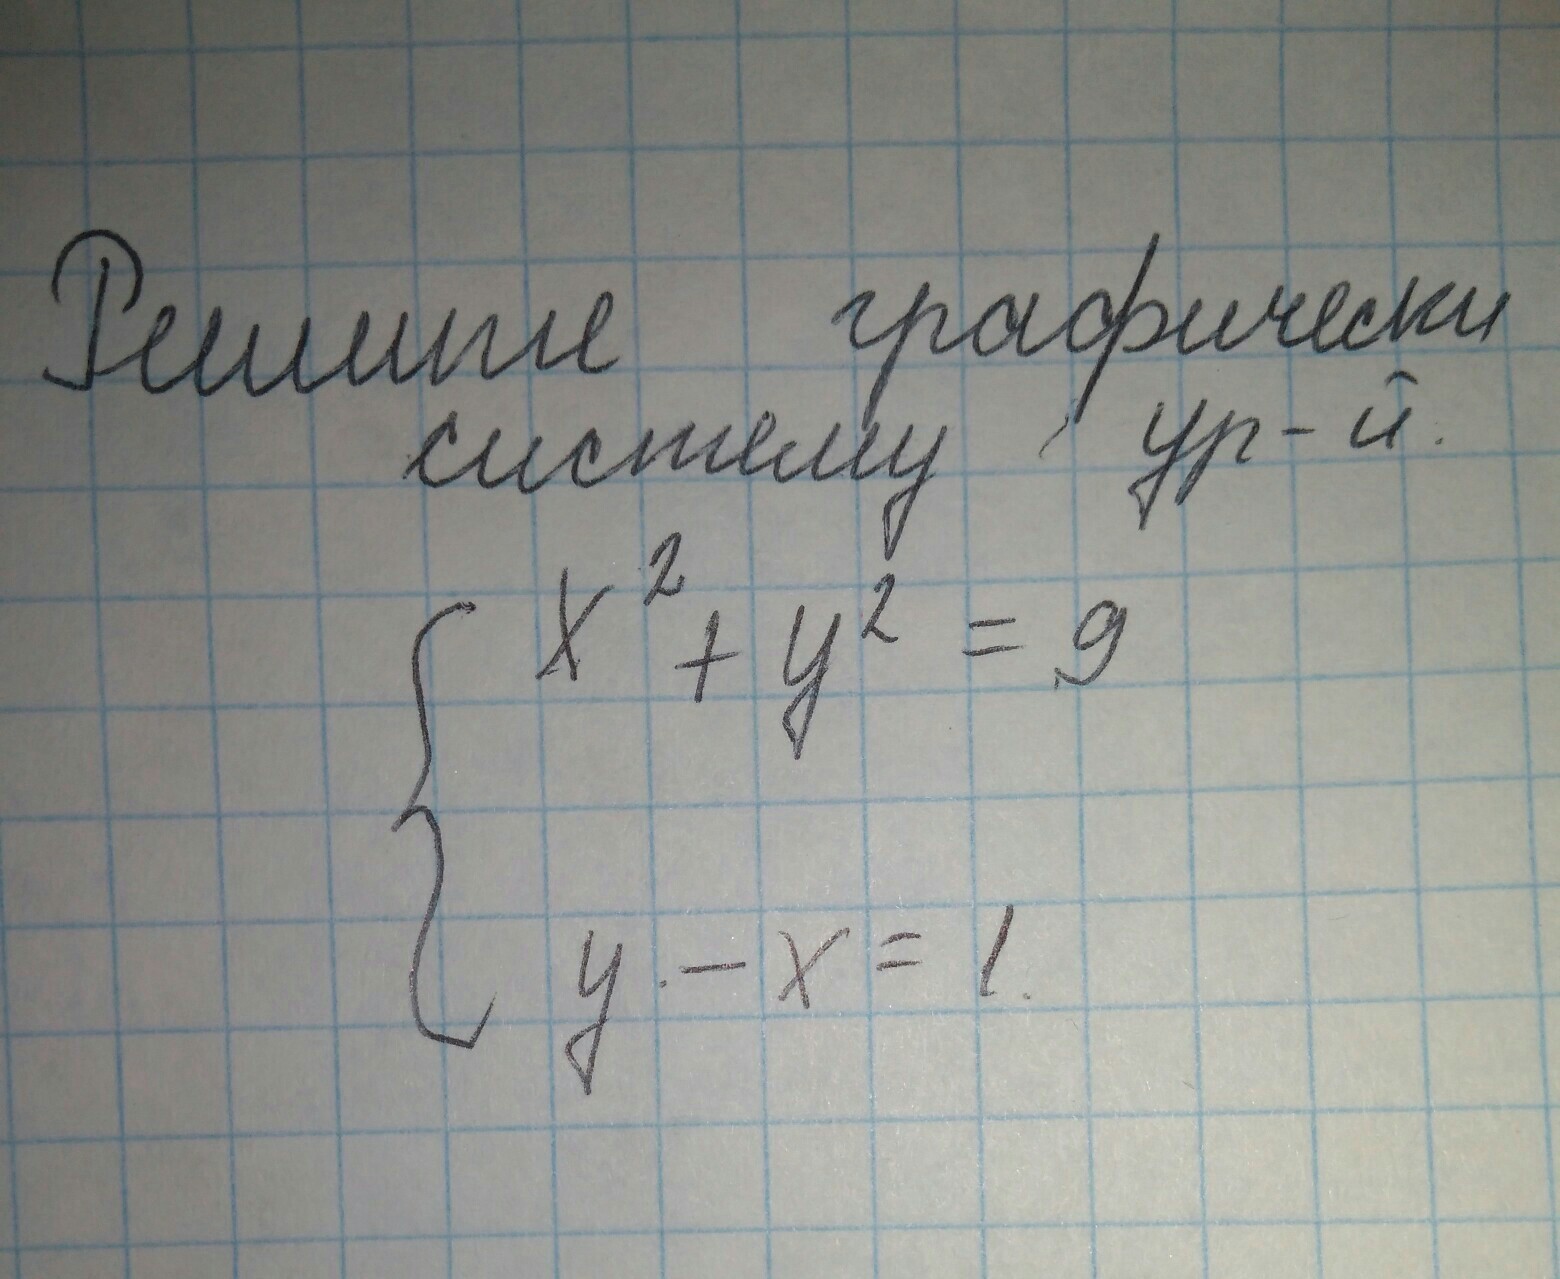 Решите графически
систему ур-й.
x² + y² = 9
y - x = 1.